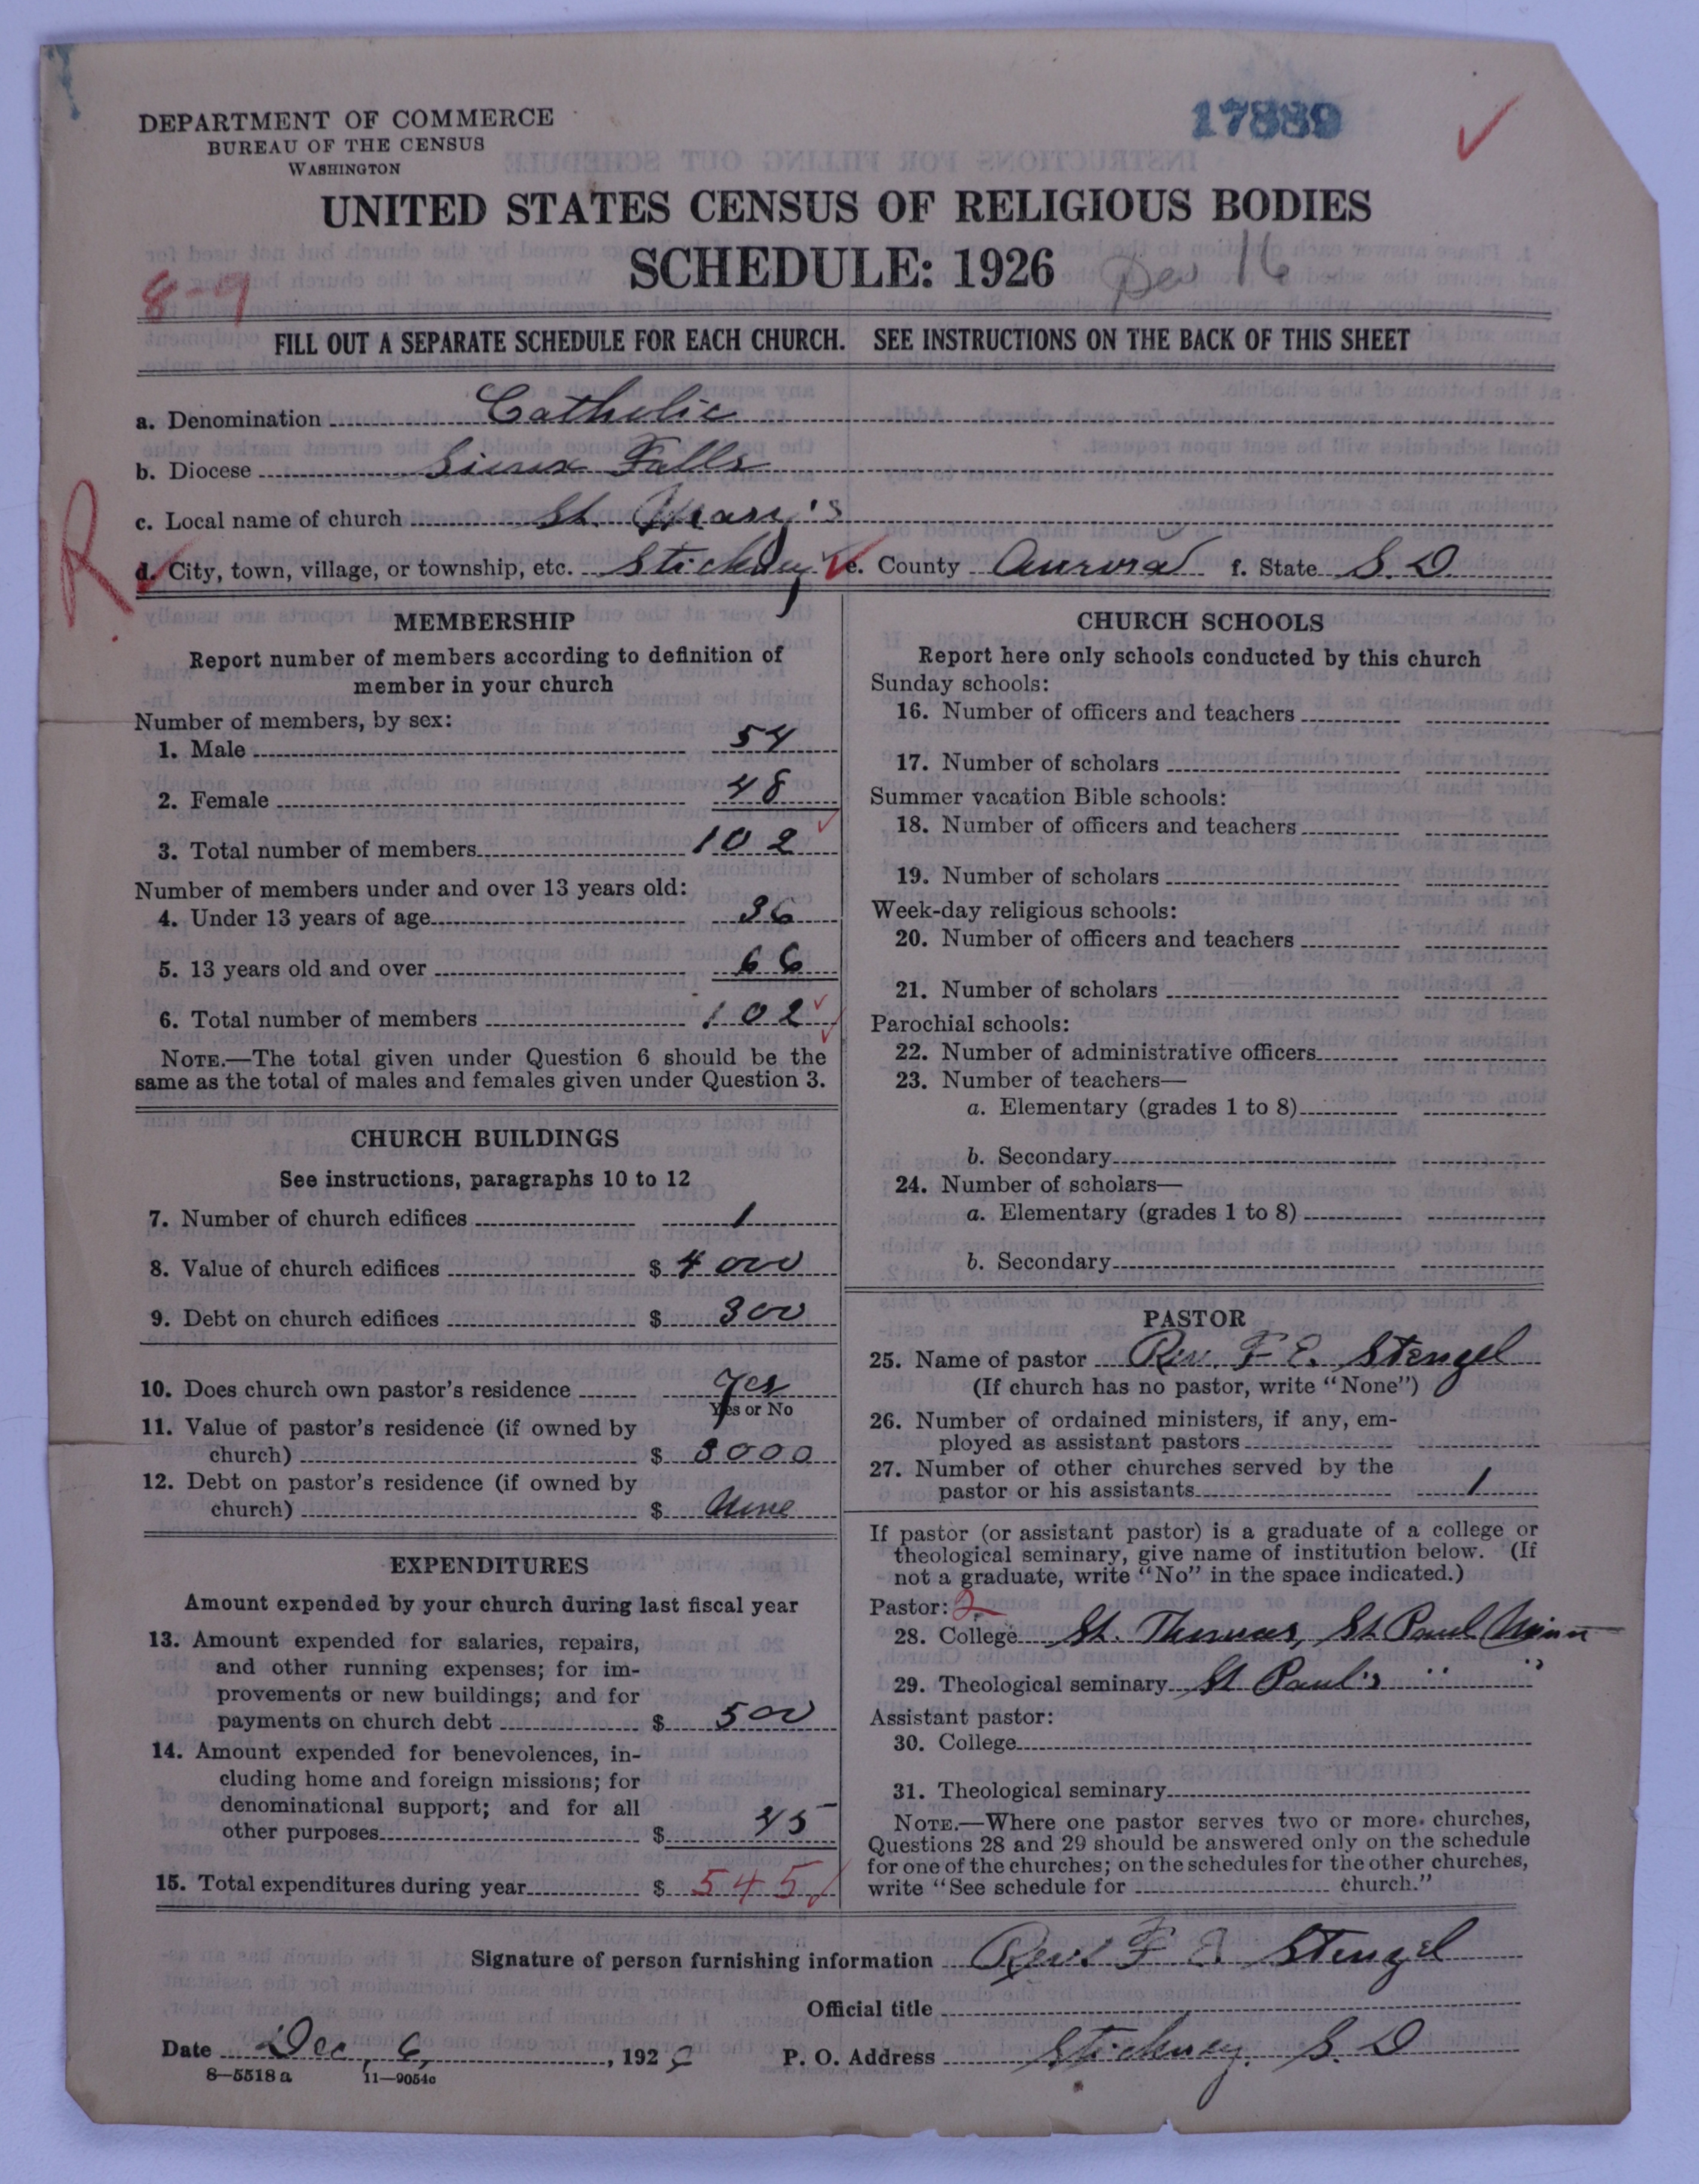 DEPARTMENT OF COMMERCE
BUREAU OF THE CENSUS
WASHINGTON
17889
UNITED STATES CENSUS OF RELIGIOUS BODIES
SCHEDULE: 1926
16
8-9
FILL OUT A SEPARATE SCHEDULE FOR EACH CHURCH. SEE INSTRUCTIONS ON THE BACK OF THIS SHEET
a. Denomination Catholic
b. Diocese Sioux Falls
c. Local name of church St. Mary's
R
d. City, town, village, or township, etc. Stickney e. County Aurora f. State S. D.
MEMBERSHIP
Report number of members according to definition of
member in your church
Number of members, by sex:
1. Male 54
2. Female 48
3. Total number of members 102
Number of members under and over 13 years old:
4. Under 13 years of age 36
5. 13 years old and over 66
6. Total number of members 102
NOTE.—The total given under Question 6 should be the
same as the total of males and females given under Question 3.
CHURCH BUILDINGS
See instructions, paragraphs 10 to 12
7. Number of church edifices 1
8. Value of church edifices $ 4000
9. Debt on church edifices $ 300
10. Does church own pastor's residence Yes
Yes or No
11. Value of pastor's residence (if owned by
church) $ 3000
12. Debt on pastor's residence (if owned by
church) $ None
EXPENDITURES
Amount expended by your church during last fiscal year
13. Amount expended for salaries, repairs,
and other running expenses; for im-
provements or new buildings; and for
payments on church debt $ 500
14. Amount expended for benevolences, in-
cluding home and foreign missions; for
denominational support; and for all
other purposes $ 45
15. Total expenditures during year $ 545
CHURCH SCHOOLS
Report here only schools conducted by this church
Sunday schools:
16. Number of officers and teachers
17. Number of scholars
Summer vacation Bible schools:
18. Number of officers and teachers
19. Number of scholars
Week-day religious schools:
20. Number of officers and teachers
21. Number of scholars
Parochial schools:
22. Number of administrative officers
23. Number of teachers—
a. Elementary (grades 1 to 8)
b. Secondary
24. Number of scholars—
a. Elementary (grades 1 to 8)
b. Secondary
PASTOR
25. Name of pastor Rev. F. E. Stengel
(If church has no pastor, write "None")
26. Number of ordained ministers, if any, em-
ployed as assistant pastors
27. Number of other churches served by the
pastor or his assistants 1
If pastor (or assistant pastor) is a graduate of a college or
theological seminary, give name of institution below. (If
not a graduate, write "No" in the space indicated.)
Pastor: 2
28. College St. Thomas, St Paul Minn
29. Theological seminary St Paul's " "
Assistant pastor:
30. College
31. Theological seminary
NOTE.—Where one pastor serves two or more churches,
Questions 28 and 29 should be answered only on the schedule
for one of the churches; on the schedules for the other churches,
write "See schedule for church."
Signature of person furnishing information Rev. F E Stengel
Official title
Date Dec, 6, , 1926 P. O. Address Stickney, S. D
8—5518 a 11—9054c